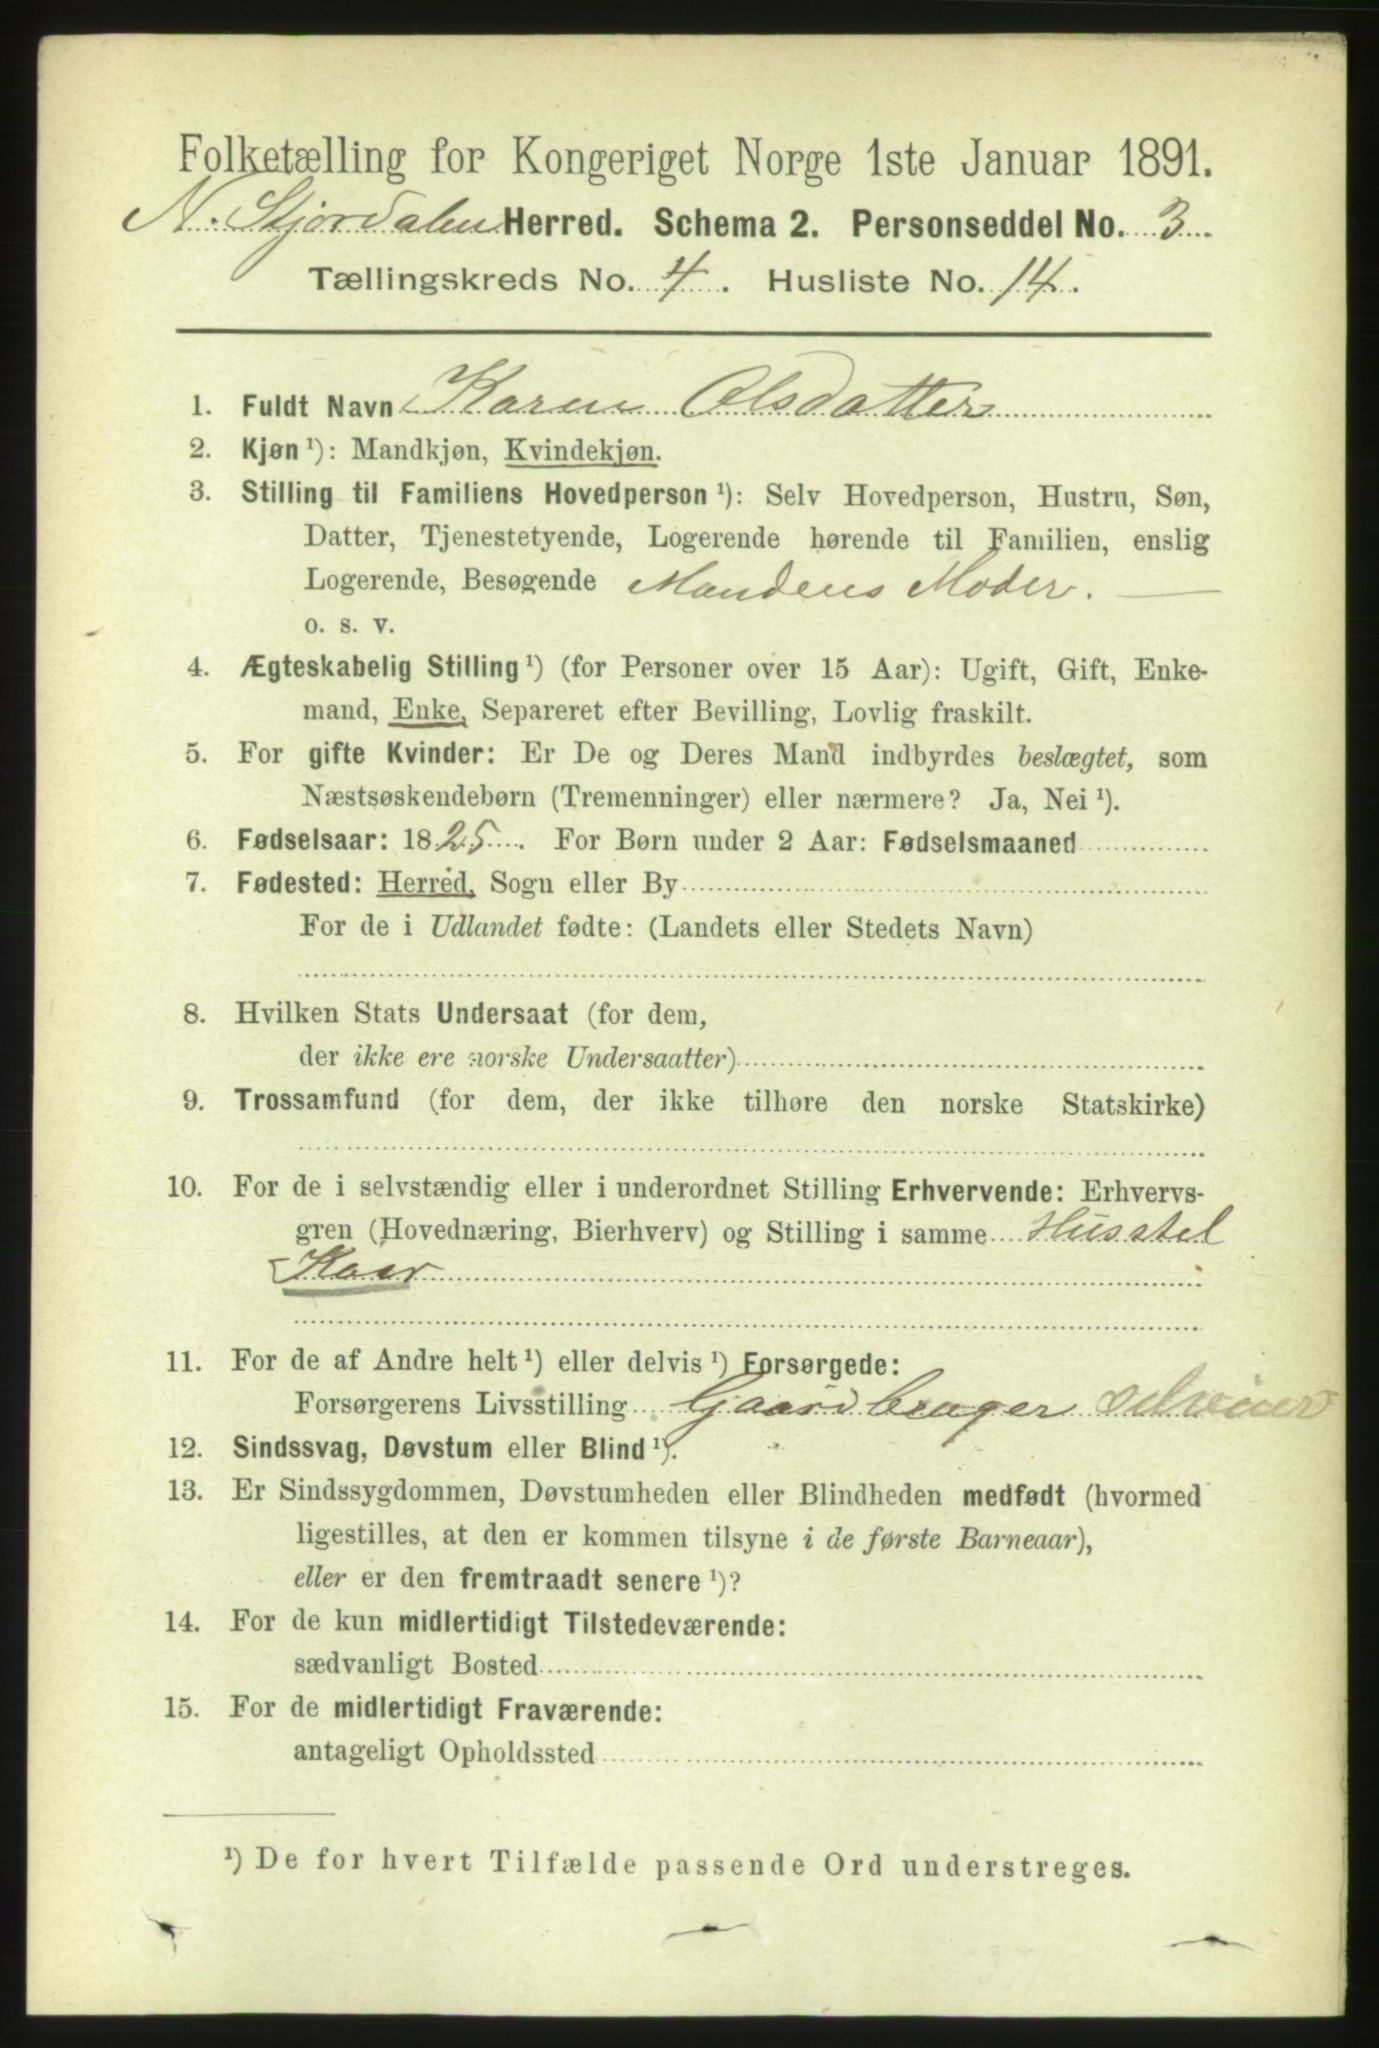 Folketælling for Kongeriget Norge 1ste Januar 1891.
N. Stjørdalen Herred. Schema 2. Personseddel No. 3
Tællingskreds No. 4. Husliste No. 14.
1. Fuldt Navn Karen Olsdatter
2. Kjøn ¹): Mandkjøn, Kvindekjøn.
3. Stilling til Familiens Hovedperson ¹): Selv Hovedperson, Hustru, Søn,
Datter, Tjenestetyende, Logerende hørende til Familien, enslig
Logerende, Besøgende Mandens Moder.
o. s. v.
4. Ægteskabelig Stilling ¹) (for Personer over 15 Aar): Ugift, Gift, Enke-
mand, Enke, Separeret efter Bevilling, Lovlig fraskilt.
5. For gifte Kvinder: Er De og Deres Mand indbyrdes beslægtet, som
Næstsøskendebørn (Tremenninger) eller nærmere? Ja, Nei ¹).
6. Fødselsaar: 1825. For Børn under 2 Aar: Fødselsmaaned
7. Fødested: Herred, Sogn eller By
For de i Udlandet fødte: (Landets eller Stedets Navn)
8. Hvilken Stats Undersaat (for dem,
der ikke ere norske Undersaatter)
9. Trossamfund (for dem, der ikke tilhøre den norske Statskirke)
10. For de i selvstændig eller i underordnet Stilling Erhvervende: Erhvervs-
gren (Hovednæring, Bierhverv) og Stilling i samme Husstel
Kaar
11. For de af Andre helt ¹) eller delvis ¹) Forsørgede:
Forsørgerens Livsstilling Gaardbruger Selveier
12. Sindssvag, Døvstum eller Blind ¹).
13. Er Sindssygdommen, Døvstumheden eller Blindheden medfødt (hvormed
ligestilles, at den er kommen tilsyne i de første Barneaar),
eller er den fremtraadt senere ¹)?
14. For de kun midlertidigt Tilstedeværende:
sædvanligt Bosted
15. For de midlertidigt Fraværende:
antageligt Opholdssted
¹) De for hvert Tilfælde passende Ord understreges.